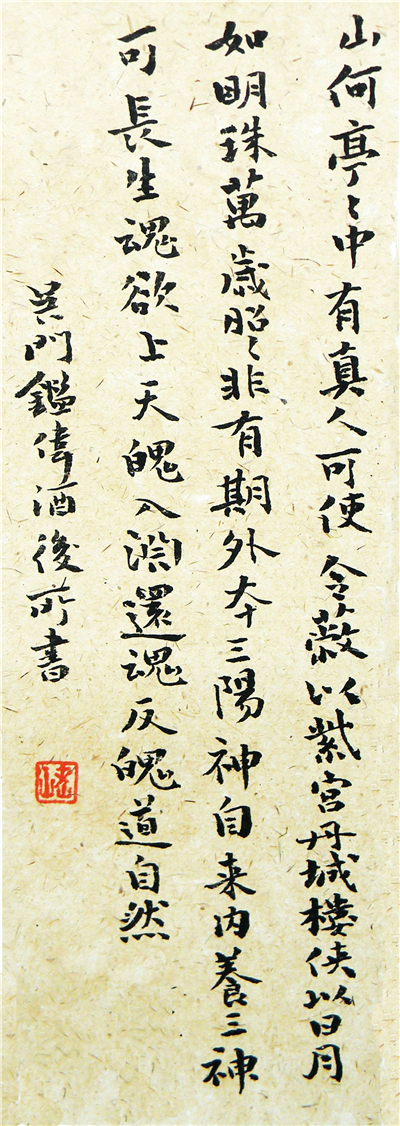 山何亭〻中有真人可使令蔽以紫宫丹城樓俠以日月
如明珠萬歲昭〻非有期外夲三陽神自来内養三神
可長生魂欲上天魄入淵還魂反魄道自然
吴門鑑偉酒後所書